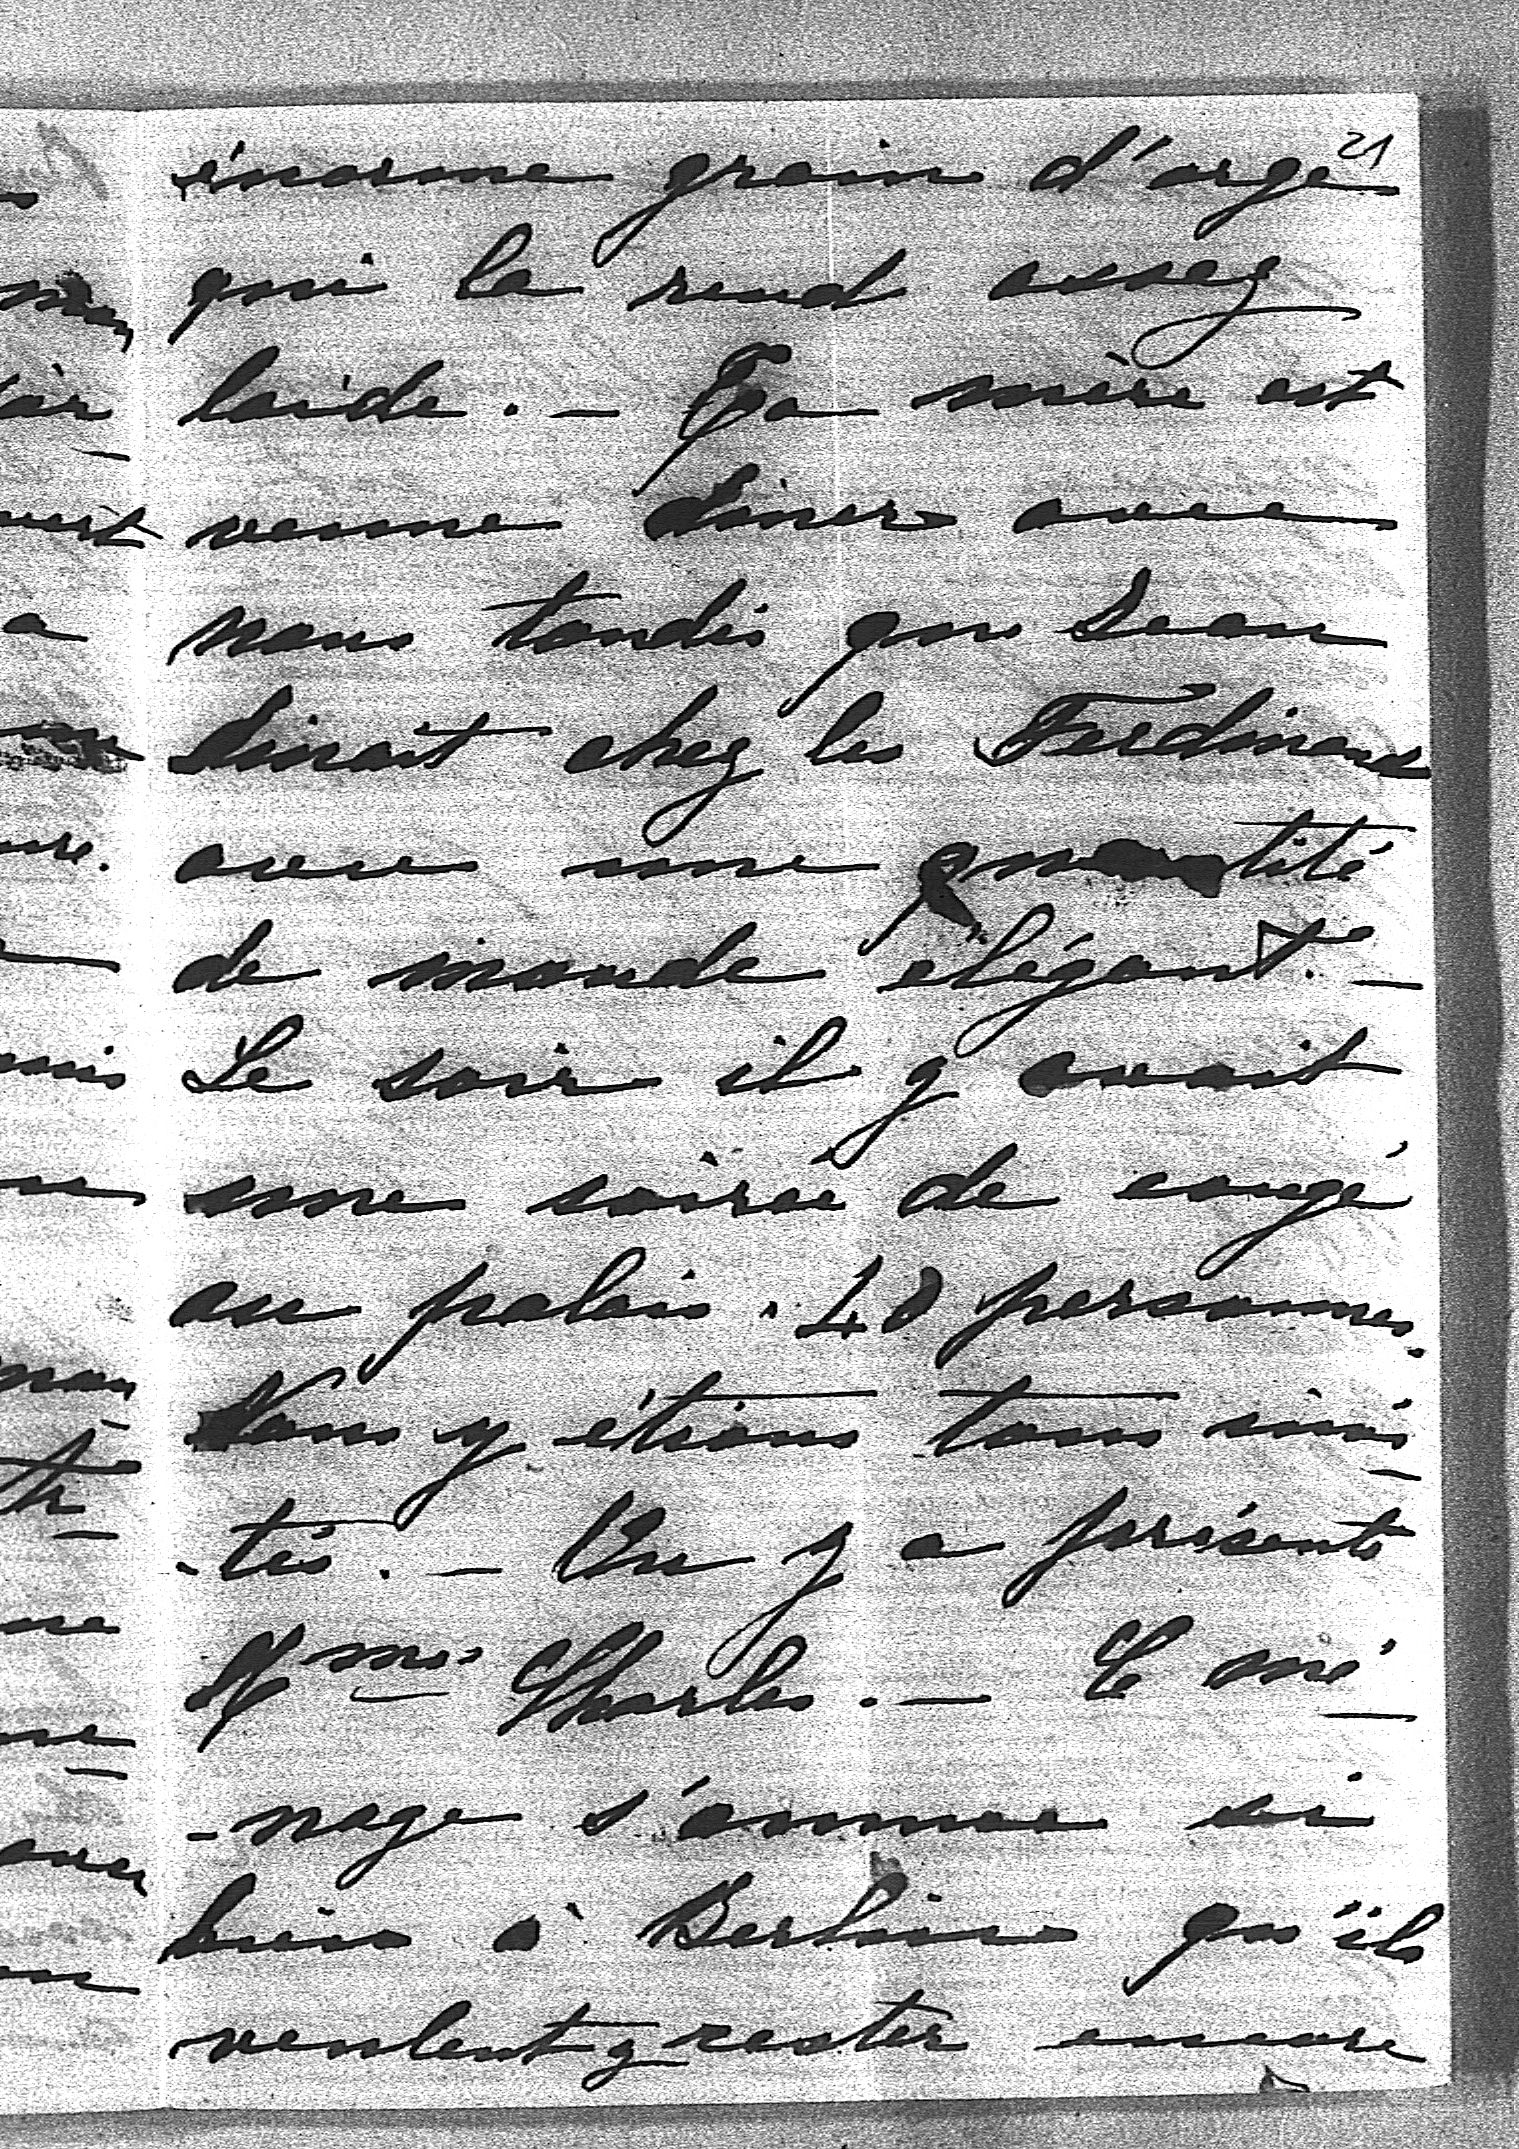 21
énorme grain d'orge
qui la rend assez
laide. — Ta mère est
venue dîner avec
nous tandis que Jean
dinait chez les Ferdinand
avec une quantité
de monde élégant. —
Le soir il y avait
une soirée de congé
au palais. 40 personnes.
Nous y étions tous invi-
-tés. — On y a présenté
Mme Charles. — Ce mé-
-nage s'amuse si
bien à Berlin qu'ils
veulent y rester encore